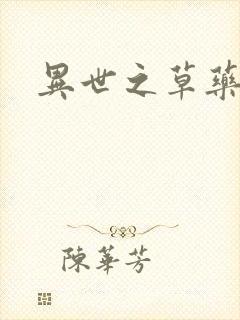 異世之草藥
陳華芳